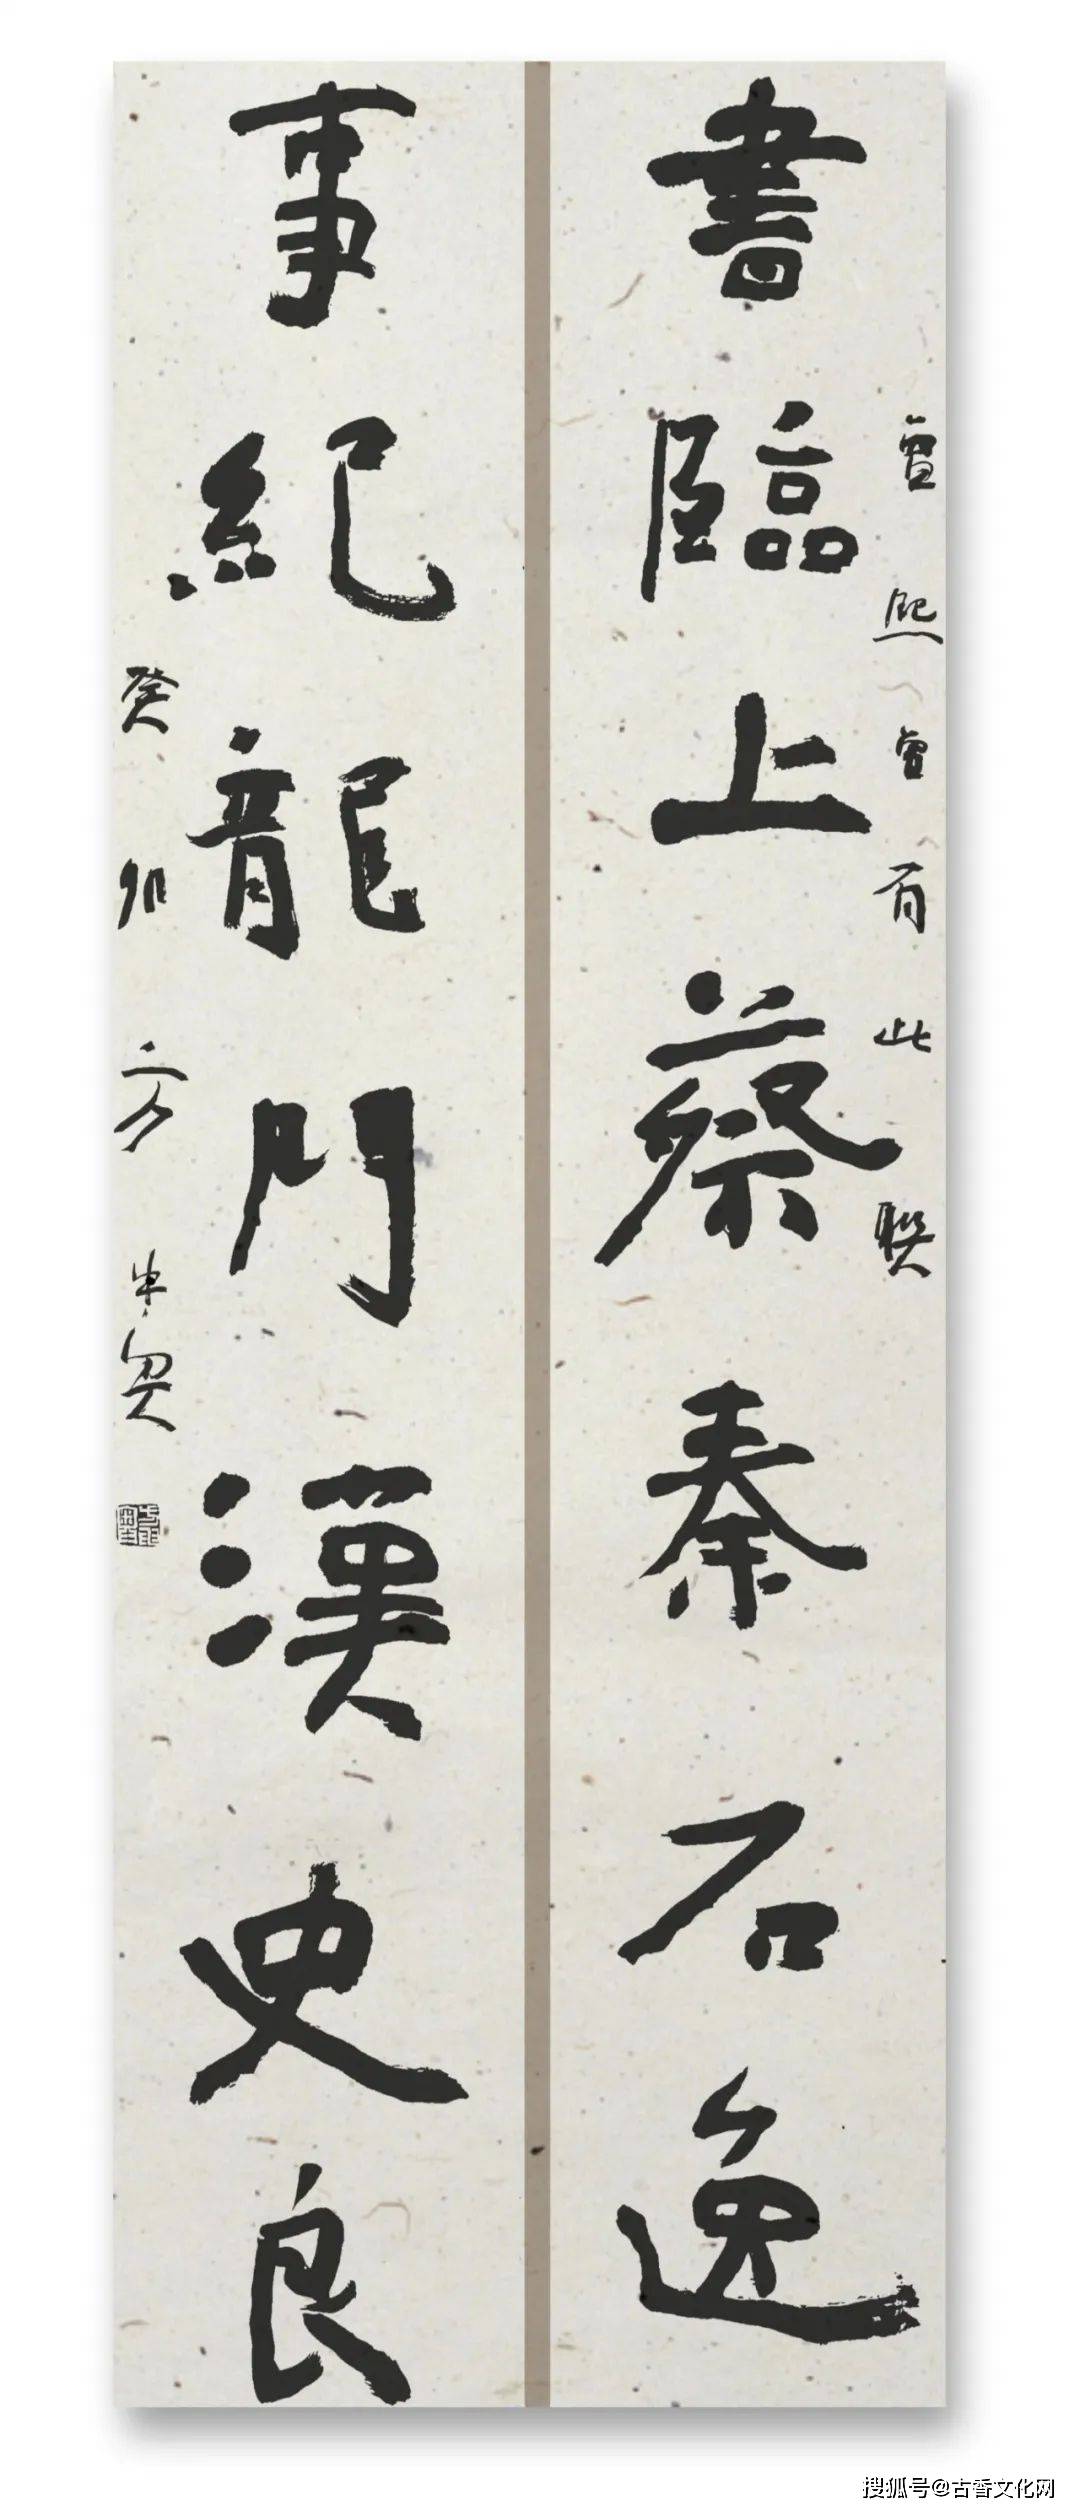 書臨上蔡秦石逸
曾熙曾有此聯
事紀龍門漢史良
癸卯 方 半
搜狐号@古香文化网